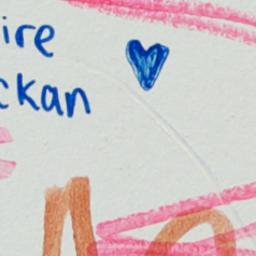 ire
ckan